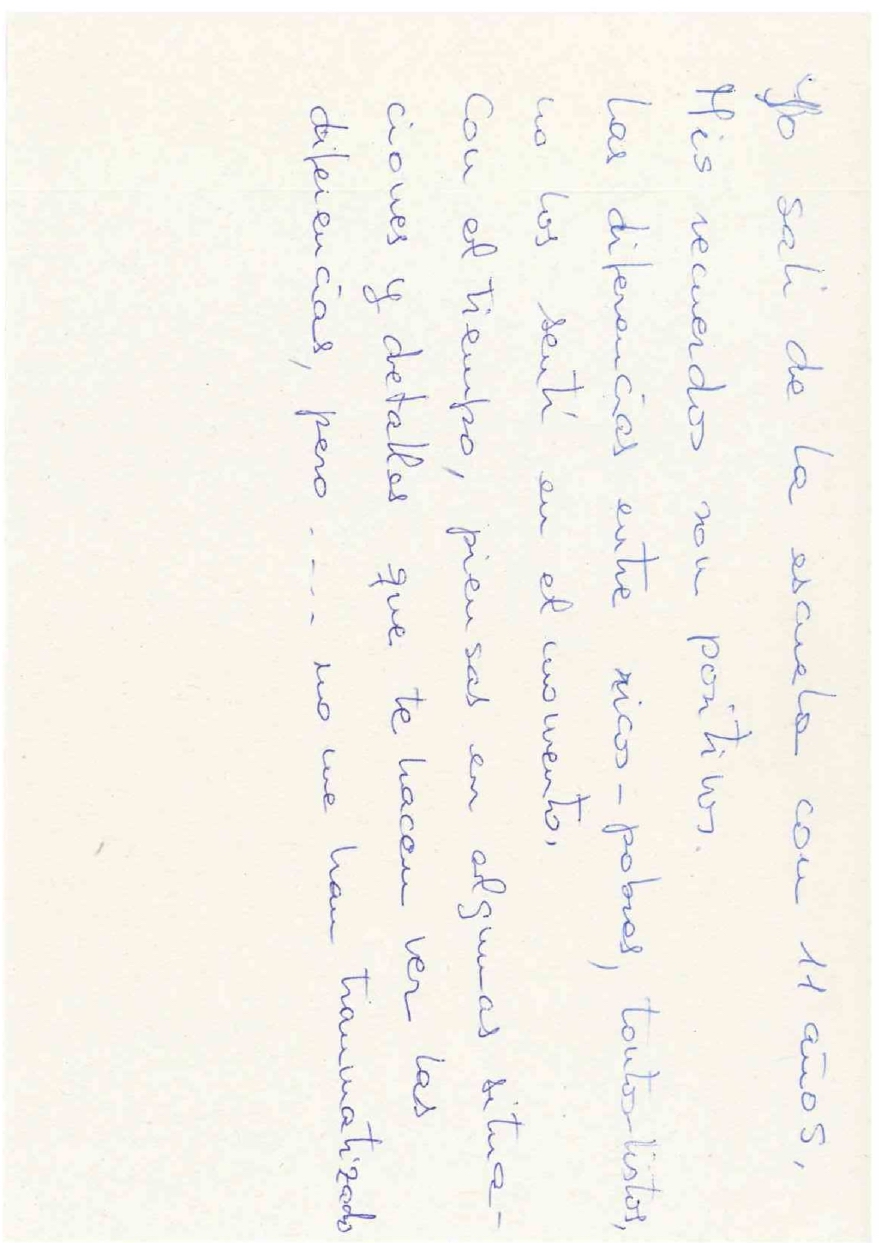 Yo sali de la escuela con 11 años.
Mis recuerdos son positivos.
Las diferencias entre ricos-pobres, tontos-listos,
no los sentí en el momento.
Con el tiempo, piensas en algunas situa-
ciones y detalles que te hacen ver las
diferencias, pero ..... no me han traumatizado